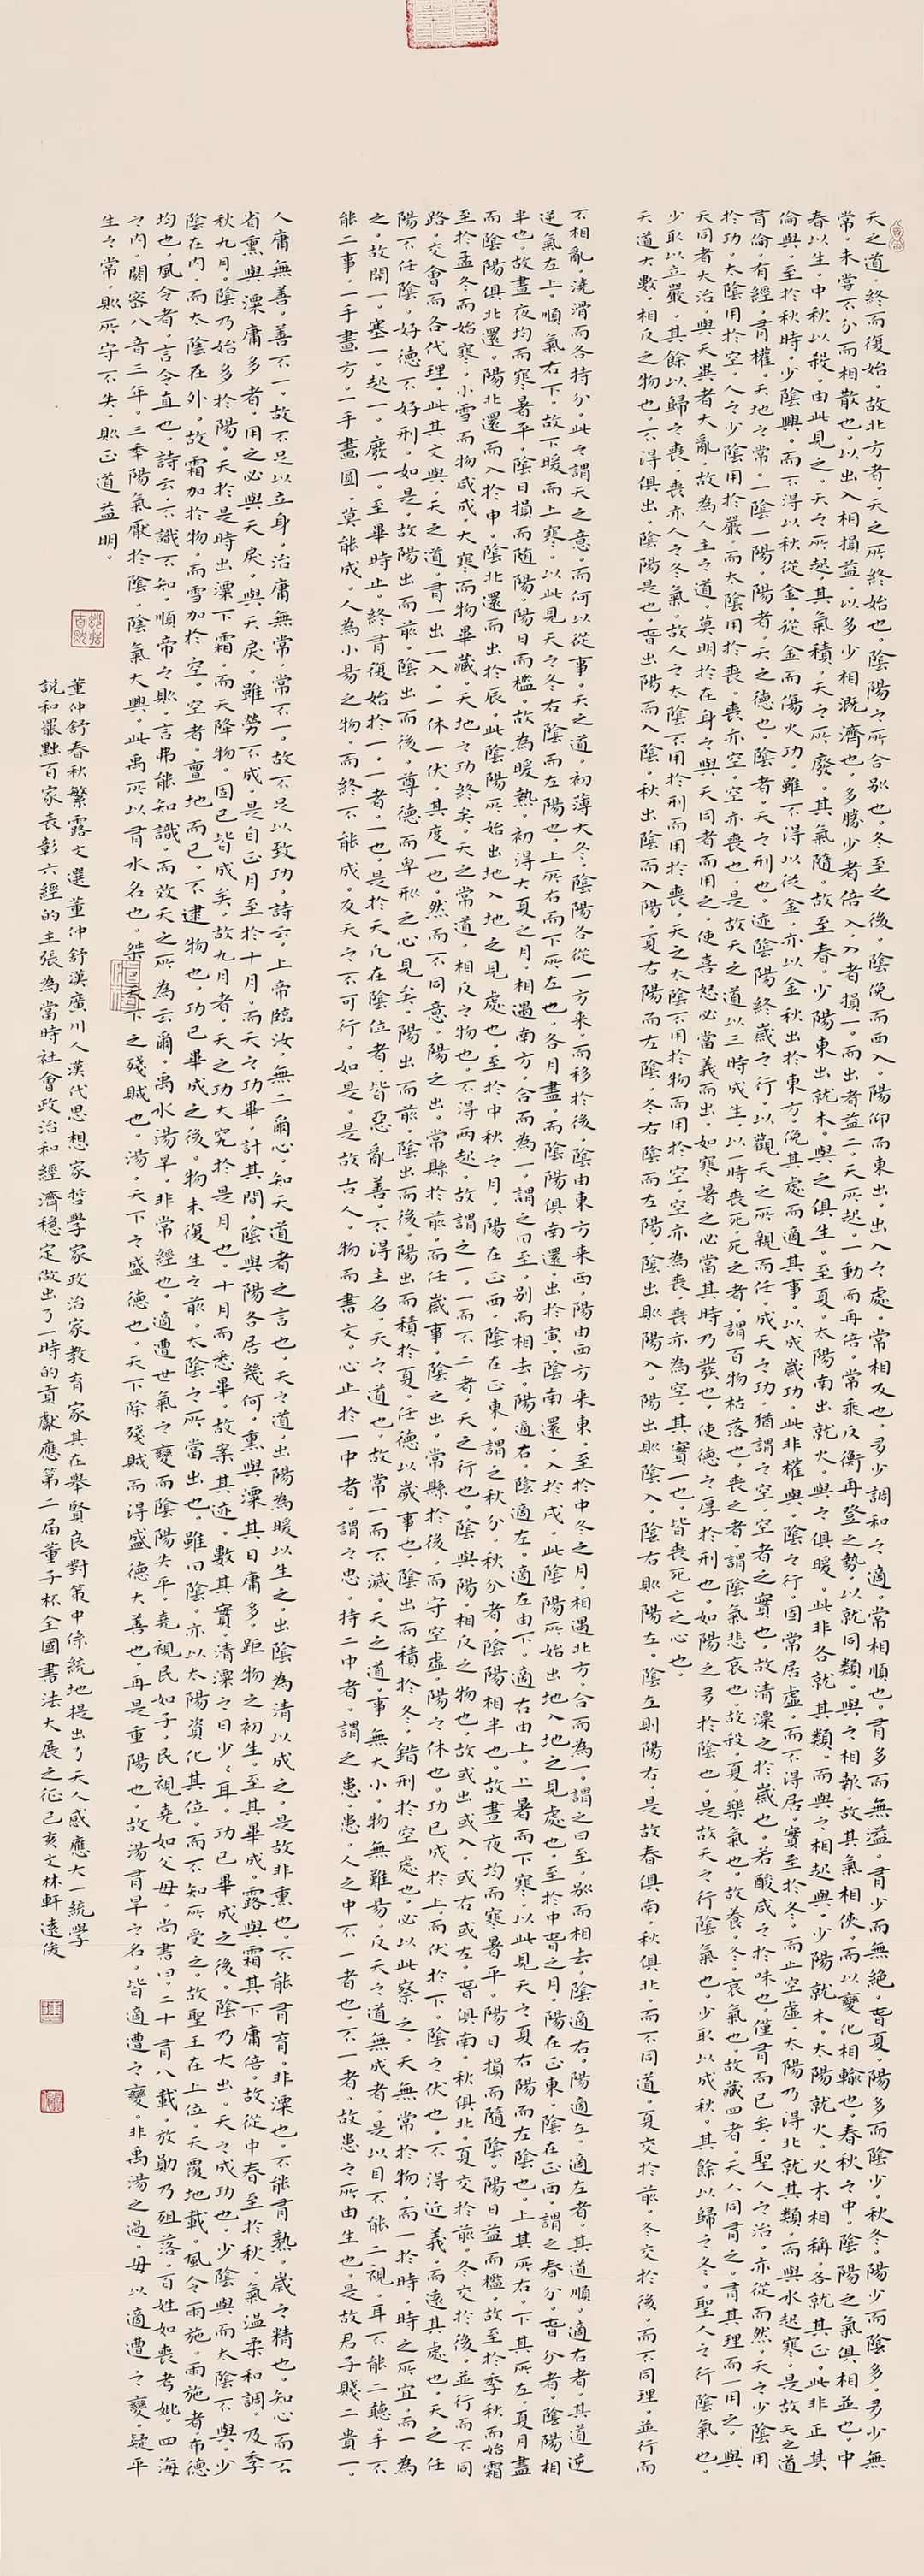 天之道。終而復始。故北方者。天之所終始也。陰陽之所合别也。冬至之後。陰俛而西入。陽仰而東出。出入之處。常相反也。多少調和之適。常相順也。有多而無溢。有少而無絕。春夏。陽多而陰少。秋冬。陽少而陰多。多少無
常。未嘗不分而相散也。以出入相損益。以多少相溉濟也。多勝少者倍入。入者損一。而出者益二。天所起。一動而再倍。常乘反衡再登之勢。以就同類。與之相報。故其氣相俠。而以變化相輸也。春秋之中。陰陽之氣俱相並也。中
春以生。中秋以殺。由此見之。天之所起。其氣積。天之所廢。其氣隨。故至春。少陽東出就木。與之俱生。至夏。太陽南出就火。與之俱暖。此非各就其類。而與之相起與。少陽就木。太陽就火。火木相稱。各就其正。此非正其
倫與。至於秋時。少陰興。而不得以秋從金。從金而傷火功。雖不得以從金。亦以金秋出於東方。俛其處而適其事。以成歲功。此非權與。陰之行。固常居虛。而不得居實至於冬。而止空虛。太陽乃得北就其類。而與水起寒。是故天之道
有倫。有經。有權。天地之常。一陰一陽。陽者。天之德也。陰者。天之刑也。迹陰陽終歲之行。以觀天之所親而任。成天之功。猶謂之空。空者之實也。故清溧之於歲也。若酸咸之於味也。僅有而已矣。聖人之治。亦從而然。天之少陰用
於功。太陰用於空。人之少陰用於嚴。而太陰用於喪。喪亦空。空亦喪也。是故天之道以三時成生。以一時喪死。死之者。謂百物枯落也。喪之者。謂陰氣悲哀也。故殺。夏。樂氣也。故養。冬。哀氣也。故藏四者。天人同有之。有其理而一用之。與
天同者大治。與天異者大亂。故為人主之道。莫明於在身之與天同者而用之。使喜怒必當義而出。如寒暑之必當其時乃發也。使德之厚於刑也。如陽之多於陰也。是故天之行陰氣也。少取以成秋。其餘以歸之冬。聖人之行陰氣也。
少取以立嚴。其餘以歸之喪。喪亦人之冬氣。故人之太陰不用於刑而用於喪。天之太陰不用於物而用於空。空亦為喪。喪亦為空。其實一也。皆喪死亡之心也。
天道大數。相反之物也。不得俱出。陰陽是也。春出陽而入陰。秋出陰而入陽。夏右陽而左陰。冬右陰而左陽。陰出則陽入。陽出則陰入。陰右則陽左。陰左則陽右。是故春俱南。秋俱北。而不同道。夏交於前。冬交於後。而不同理。並行而
不相亂。澆滑而各持分。此之謂天之意。而何以從事。天之道。初薄大冬。陰陽各從一方来。而移於後。陰由東方来西。陽由西方来東。至於中冬之月。相遇北方。合而為一。謂之曰至。别而相去。陰適右。陽適左。適左者。其道順。適右者。其道逆
逆氣左上。順氣右下。故下暖而上寒。以此見天之冬右陰而左陽也。上所右而下所左也。冬月盡。而陰陽俱南還。出於寅。陰南還。入於戌。此陰陽所始出地入地之見處也。至於中春之月。陽在正東。陰在正西。謂之春分。春分者。陰陽相
半也。故晝夜均而寒暑平。陰日損而随陽。陽日而槛。故為暖熱。初得大夏之月。相遇南方。合而為一。謂之曰至。别而相去。陽適右。陰適左。適左由下。適右由上。上暑而下寒。以此見天之夏右陽而左陰也。上其所右。下其所左。夏月盡
而陰陽俱北還。陽北還而入於申。陰北還而出於辰。此陰陽所始出地入地之見處也。至於中秋之月。陽在正西。陰在正東。謂之秋分。秋分者。陰陽相半也。故晝夜均而寒暑平。陽日損而隨陰。陽日益而槛。故至於季秋而始霜
至於孟冬而始寒。小雪而物咸成。大寒而物畢藏。天地之功終矣。天之常道。相反之物也。不得兩起。故謂之一。一而不二者。天之行也。陰與陽。相反之物也。故或出或入。或右或左。春俱南。秋俱北。夏交於前。冬交於後。並行而不同
路。交會而各代理。此其文與。天之道。有一出一入。一休一伏。其度一也。然而不同意。陽之出。常縣於前。而任歲事。陰之出。常縣於後。而守空虛。陽之休也。功已成於上。而伏於下。陰之伏也。不得近義。而遠其處也。天之任
陽不任陰。好德不好刑。如是。故陽出而前。陰出而後。尊德而卑刑之心見矣。陽出而前。陰出而後。陽出而積於夏。任德以歲事也。陰出而積於冬。錯刑於空處也。必以此察之。天無常於物。而一於時。時之所宜。而一為
之。故開一。塞一。起一。廢一。至畢時止。終有復始於一。一者。一也。是於天凡在陰位者。皆惡亂善。不得主名。天之道也。故常一而不滅。天之道。事無大小。物無難易。反天之道無成者。是以目不能二視。耳不能二聽。手不
能二事。一手畫方。一手畫圓。莫能成。人為小易之物。而終不能成。反天之不可行。如是。是故古人。物而書文。心止於一中者。謂之忠。持二中者。謂之患。患。人之中不一者也。不一者。故患之所由生也。是故君子賤二貴一。
人庸無善。善不一。故不足以立身。治庸無常。常不一。故不足以致功。詩云。上帝臨汝。無二爾心。知天道者之言也。天之道。出陽為暖以生之。出陰為清以成之。是故非熏也。不能有育。非溧也。不能有熟。歲之精也。知心而不
省熏與溧庸多者。用之必與天戾。與天戾。雖勞不成。是自正月至於十月。而天之功畢。計其間。陰與陽各居幾何。熏與溧。其日庸多。距物之初生。至其畢成。露與霜其下庸倍。故從中春至於秋。氣溫柔和調。及季
秋九月。陰乃始多於陽。天於是時出溧下霜。而天降物。固已皆成矣。故九月者。天之功大究於是月也。十月而悉畢。故案其迹。數其實。清溧之日少少耳。功已畢成之後。陰乃大出。天之成功也。少陰與而太陰不與。少
陰在内。而太陰在外。故霜加於物。而雪加於空。空者。亶地而已。不逮物也。功已畢成之後。物未復生之前。太陰之所當出也。雖曰陰。亦以太陽資化其位。而不知所受之。故聖王在上位。天覆地載。風令雨施。雨施者。布德
均也。風令者。言令直也。詩云。不識不知。順帝之則。言弗能知識。而效天之所為云爾。禹水湯旱。非常經也。適遭世氣之變。而陰陽失平。堯視民如子。民視堯如父母。尚書曰。二十有八載。放勛乃殂落。百姓如喪考妣。四海
之内。閼密八音三年。三年陽氣厭於陰。陰氣大興。此禹所以有水名也。桀。天下之殘賊也。湯。天下之盛德也。天下除殘賊而得盛德大善也。再是重陽也。故湯有旱之名。皆適遭之變。非禹湯之過。毋以適遭之變。疑平
生之常。則所守不失。則正道益明。
董仲舒春秋繁露文選董仲舒漢廣川人漢代思想家哲學家政治家教育家其在舉賢良對策中係統地提出了天人感應大一統學
說和罷黜百家表彰六經的主張為當時社會政治和經濟穩定做出了一時的貢獻應第二届董子杯全國書法大展之征己亥文林軒遠俊